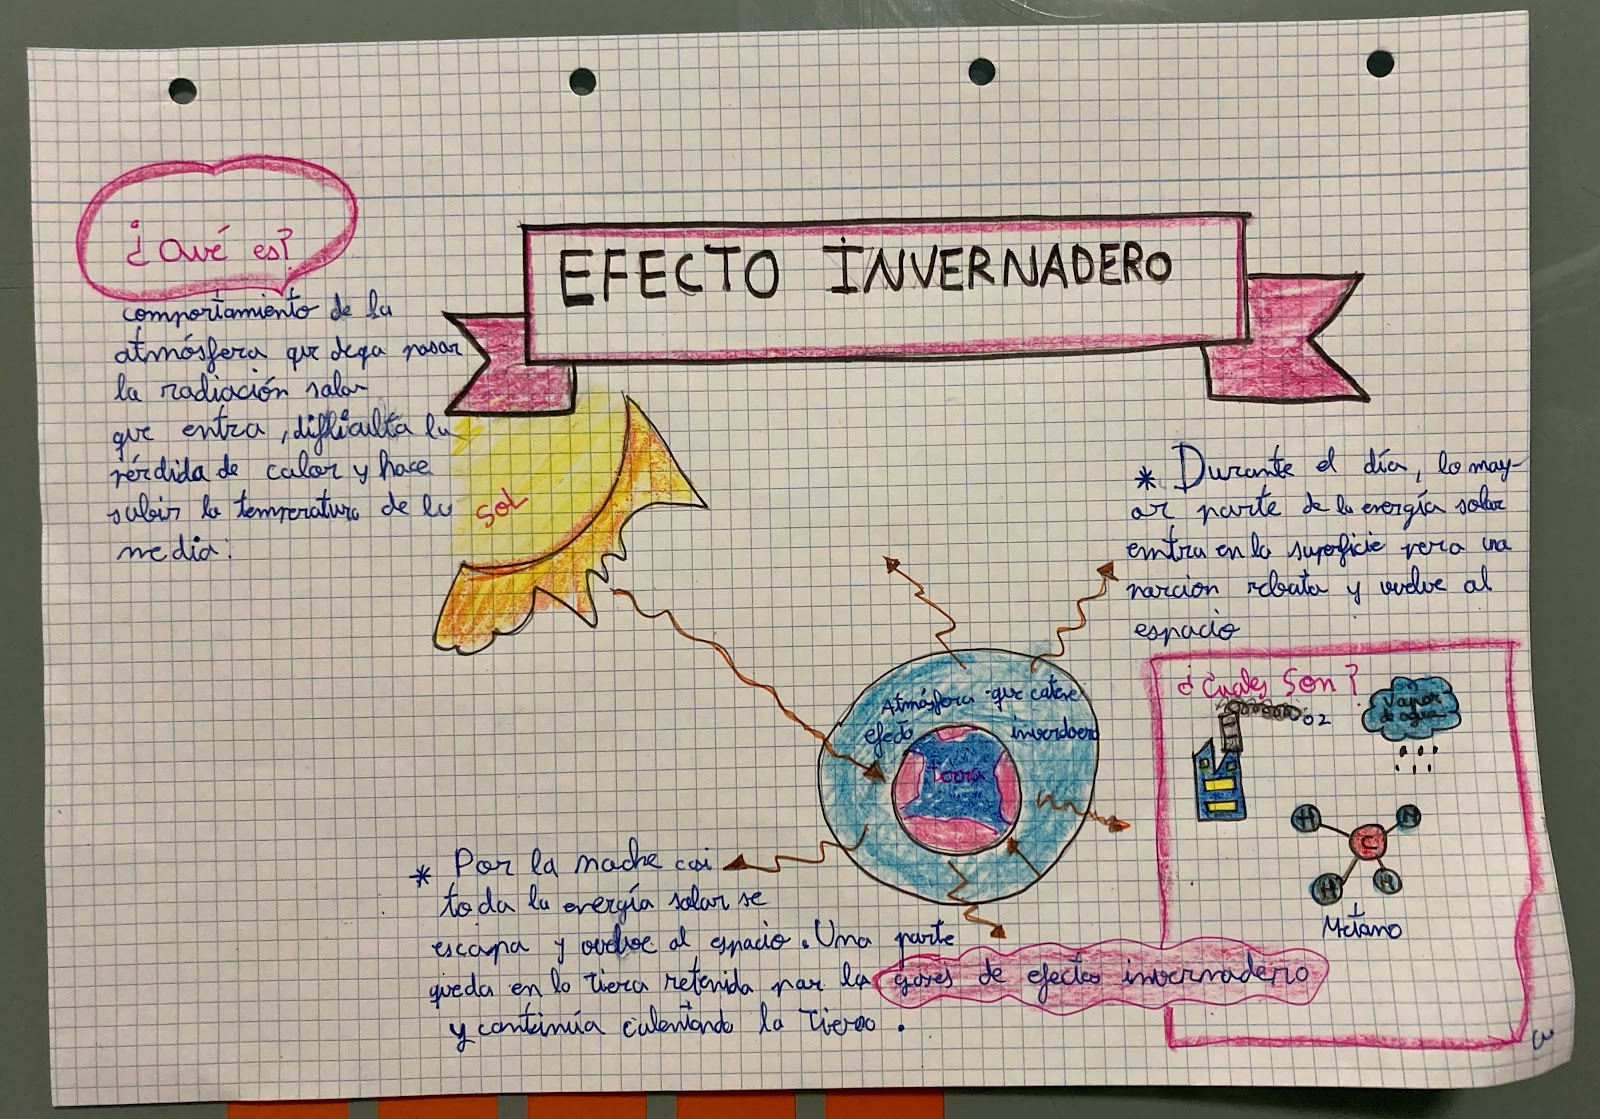 EFECTO INVERNADERO
¿Qué es?
comportamiento de la
atmósfera que dega pasar
la radiación solar
que entra, dificulta la
pérdida de calor y hace
subir la temperatura de la
media.
SOL
* Durante el día, la may-
or parte de la energía solar
entra en la superficie pero una
porcion rebota y vuelve al
espacio
Atmósfera que
efecto
Tierra
¿Cuales Son?
O2
Vapor
de agua
H
C
H
H
Metano
* Por la noche casi
toda la energía solar se
escapa y vuelve al espacio. Una parte
queda en la Tiera retenida por la gases de efecto invernadero
y continúa calentando la Tierra.